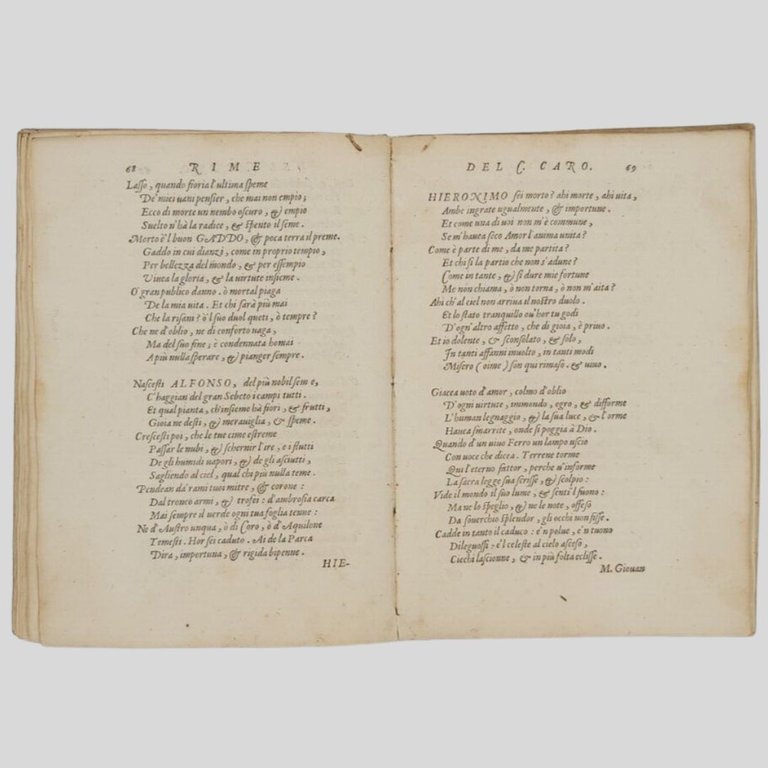 68 RIME
Lasso, quando fioria l'ultima speme
De' miei vani pensier, che mai non empio;
Ecco di morte un nembo oscuro, & empio
Suelto n'hà la radice, & spento il seme.
Morto è'l buon GADDO, & poca terra il preme.
Gaddo in cui dianzi, come in proprio tempio,
Per bellezza del mondo, & per essempio
Viuea la gloria, & la virtute insieme.
O' gran publico danno. ò mortal piaga
De la mia vita. Et chi sarà più mai
Che la risani? ò'l suo duol queti, ò tempre?
Che ne d'oblio, ne di conforto uaga,
Ma del suo fine; è condennata homai
A più nulla sperare, & pianger sempre.
Nascesti ALFONSO, del più nobil seme,
C'haggian del gran Sebeto i campi tutti.
Et qual pianta, ch'insieme hà fiori, & frutti,
Gioia ne desti, & merauiglia, & speme.
Crescesti poi, che le tue cime estreme
Passar le nubi, & schernir l'ire, e i flutti
De gli humidi vapori, & de gli asciutti,
Sagliendo al ciel, qual che più nulla teme.
Pendean da' rami tuoi mitre, & corone:
Dal tronco armi, & trofei: d'ambrosia carca
Mai sempre il verde ogni tua foglia tenne:
Ne d'Austro unqua, ò di Coro, ò d'Aquilone
Temesti. Hor sei caduto. Ai de la Parca
Dira, importuna, & rigida bipenne.
HIE-
DEL C. CARO. 69
HIERONIMO sei morto? ahi morte, ahi vita,
Ambe ingrate ugualmente, & importune.
Et come una di uoi non m'è commune,
Se m'hauea seco Amor l'anima unita?
Come è parte di me, da me partita?
Et chi fà partìo che non s'adune?
Come in tante, & sì dure mie fortune
Me non chiama, ò non torna, ò non m'aita?
Ahi ch'al ciel non arriua il nostro duolo.
Et lo stato tranquillo ou'hor tu godi
D'ogn'altro affetto, che di gioia, è priuo.
Et io dolente, & sconsolato, & solo,
In tanti affanni inuolto, in tanti modi
Misero (oime) son qui rimaso. & uiuo.
Giacea uoto d'amor, colmo d'oblio
D'ogni virtute, immondo, egro, & difforme
L'human legnaggio, & la sua luce, & l'orme
Hauea smarrite, onde si poggia à Dio.
Quando d'un viuo Ferro un lampo uscìo
Con uoce che dicea. Terrene torme
Qui l'eterno fattor, perche u'informe
La sacra legge sua scrisse, & scolpìo:
Vide il mondo il suo lume, & sentì'l suono:
Ma ne lo speglio, & ne le note, offeso
Da souerchio splendor, gli occhi non fisse.
Cadde in tanto il caduco: e'n polue, e'n tuono
Dileguossi: e'l celeste al cielo asceso,
Ciechi lascionne, & in più folta eclisse.
M. Giouan